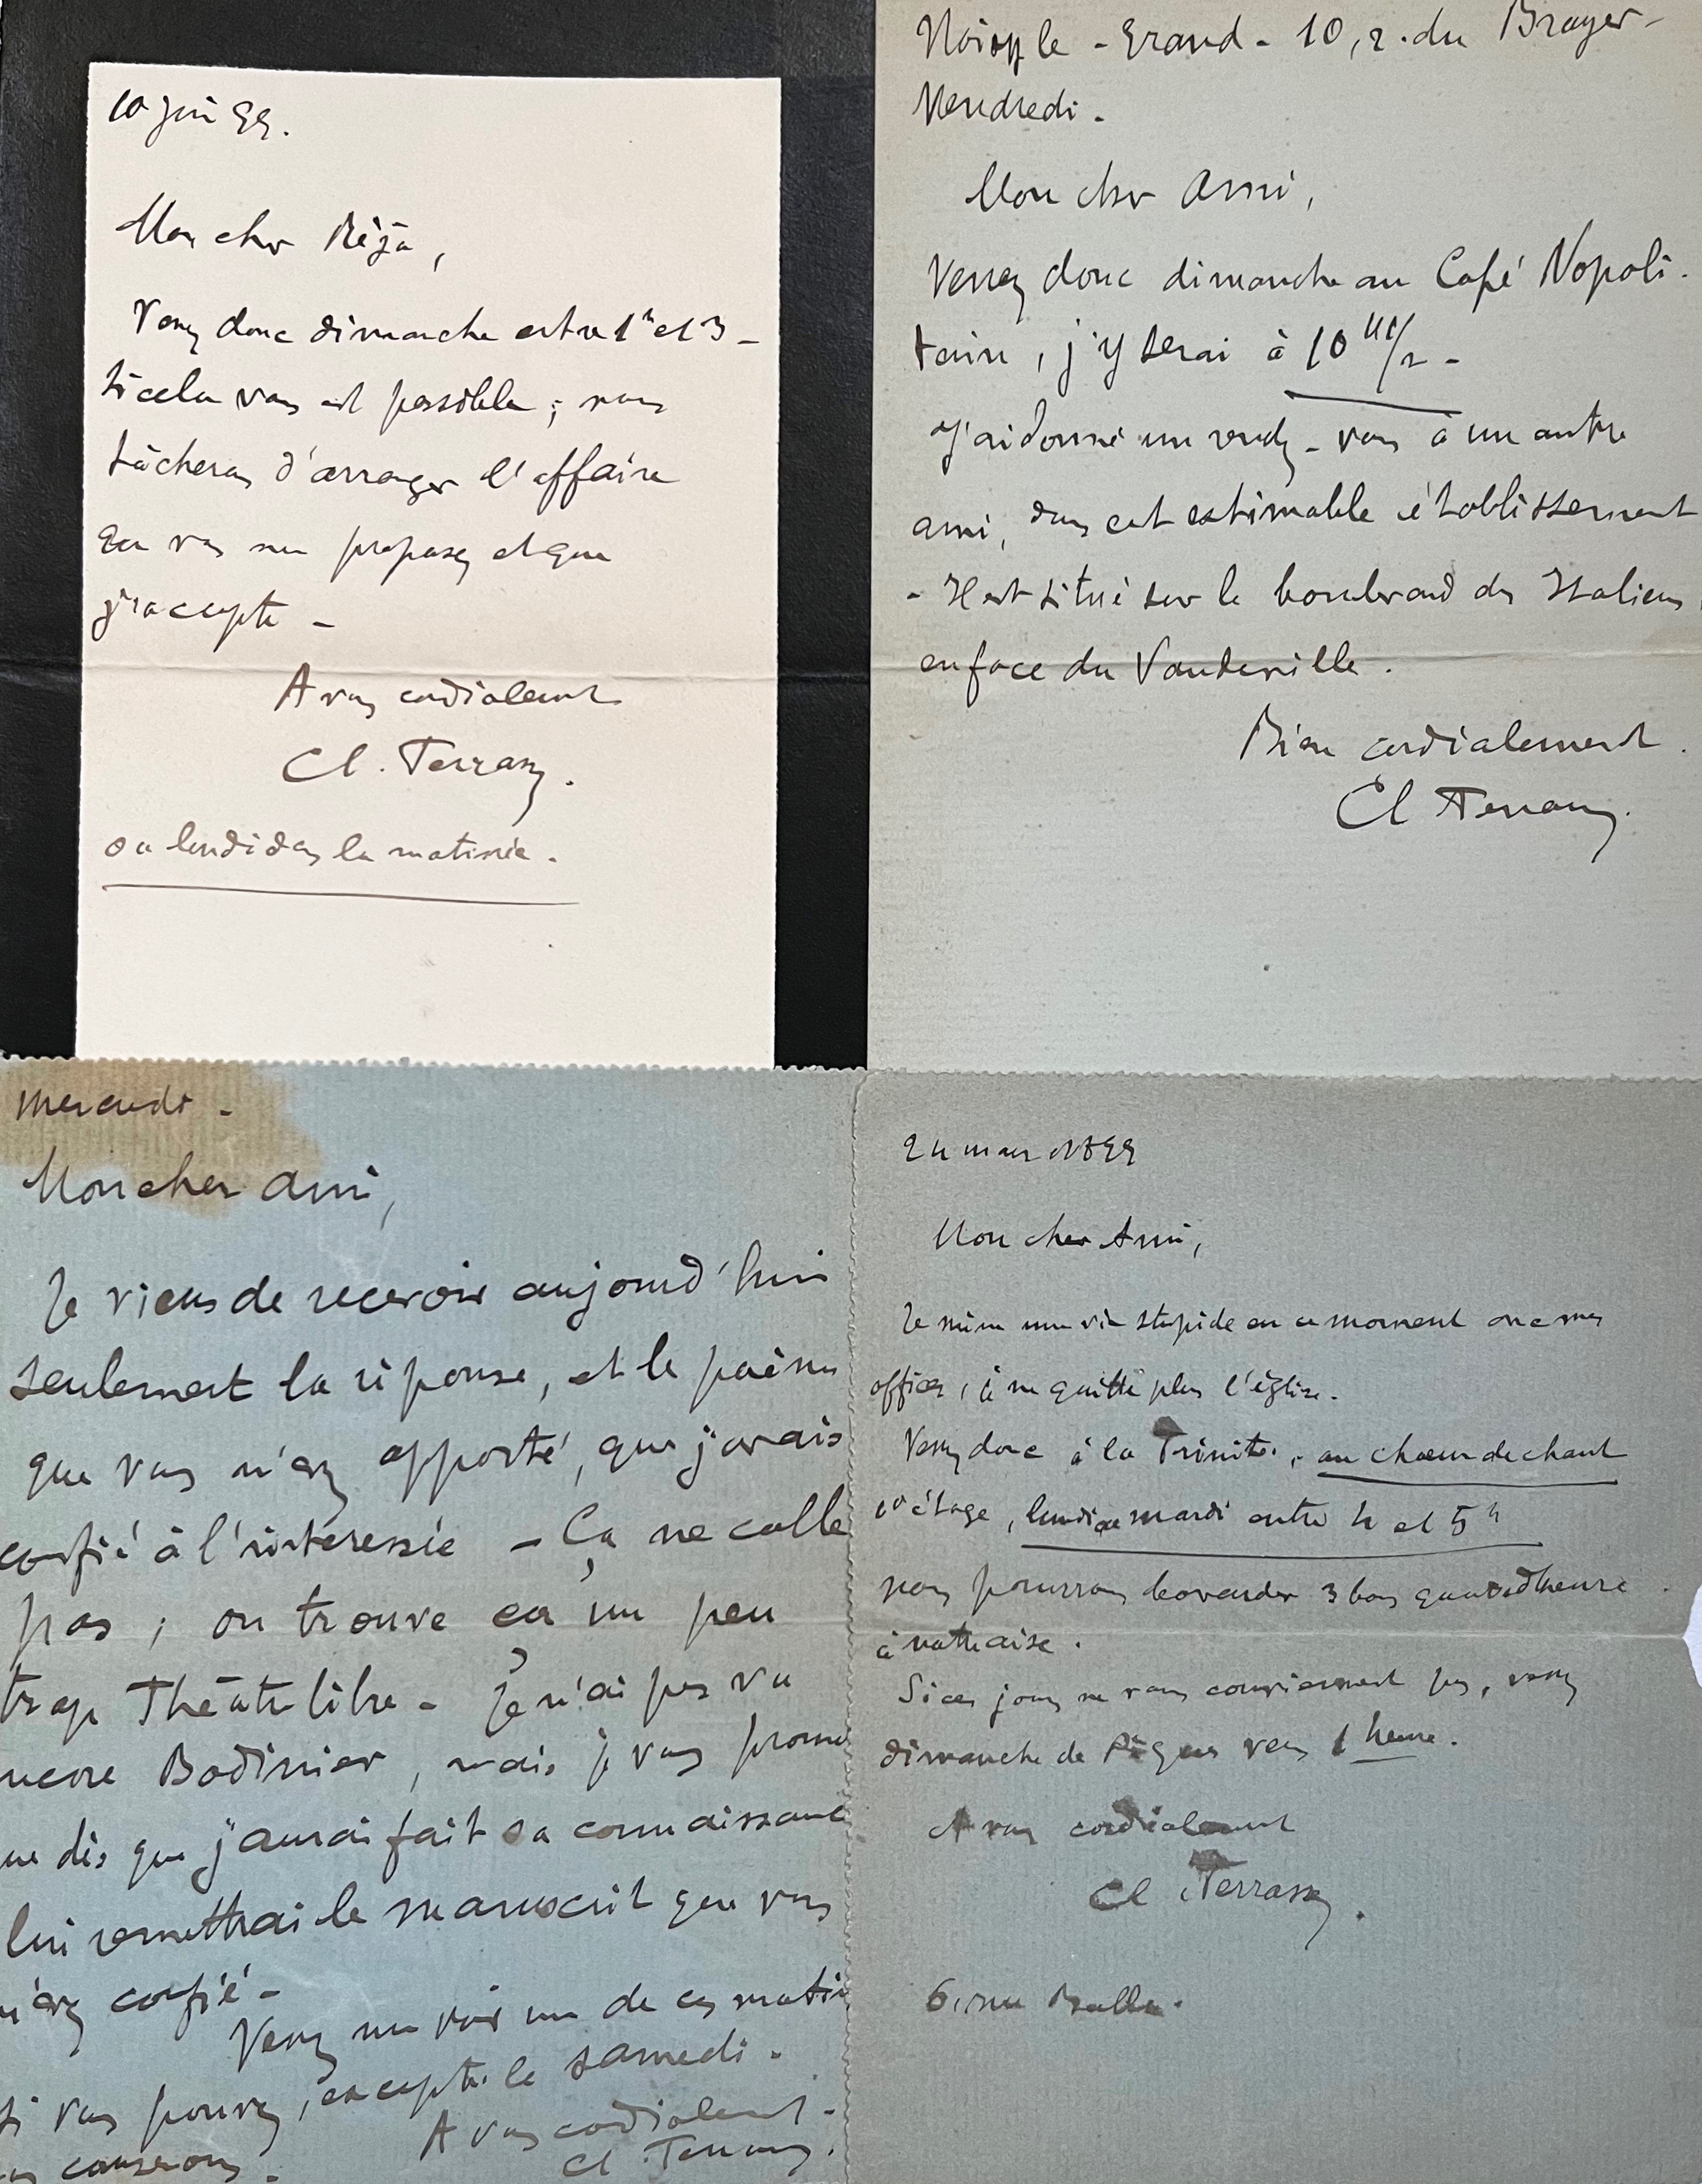 10 juin 99.
Mon cher Réja,
Venez donc dimanche entre 1h et 3 -
si cela vous est possible ; nous
tâcherons d'arranger l'affaire
que vous me proposez et que
j'accepte -
A vous cordialement
Cl. Terrasse.
ou lundi dans la matinée.
Noisy le - Grand - 10, r. du Brayer -
Vendredi -
Mon cher Ami,
Venez donc dimanche au Café Napoli-
tain, j'y serai à 10 h 1/2 -
J'ai donné un rendez-vous à un autre
ami, dans cet estimable établissement
- Il est situé sur le boulevard des Italiens,
en face du Vaudeville.
Bien cordialement.
Cl Terrasse.
Mercredi -
Mon cher Ami,
Je viens de recevoir aujourd'hui
seulement la réponse, et le poème
que vous m'avez apporté, que j'avais
confié à l'intéressée - Ça ne colle
pas ; on trouve ça un peu
trop Théâtre libre - Je n'ai pas vu
encore Bodinier, mais je vous promets
que dès que j'aurai fait sa connaissance
lui remettrai le manuscrit que vous
m'avez confié -
Venez me voir un de ces matins
si vous pouvez, excepté le samedi -
A vous cordialement -
Cl. Terrasse.
causerons.
24 mars 1899
Mon cher Ami,
Je mène une vie stupide en ce moment avec mes
offices, je ne quitte plus l'église.
Venez donc à la Trinité, au chœur de chant
1er étage, lundi ou mardi entre 4 et 5 h
nous pourrons bavarder 3 bons quarts d'heure
à notre aise.
Si ces jours ne vous conviennent pas, venez
dimanche de Pâques vers 1 heure.
A vous cordialement
Cl Terrasse.
6, rue Ballu.